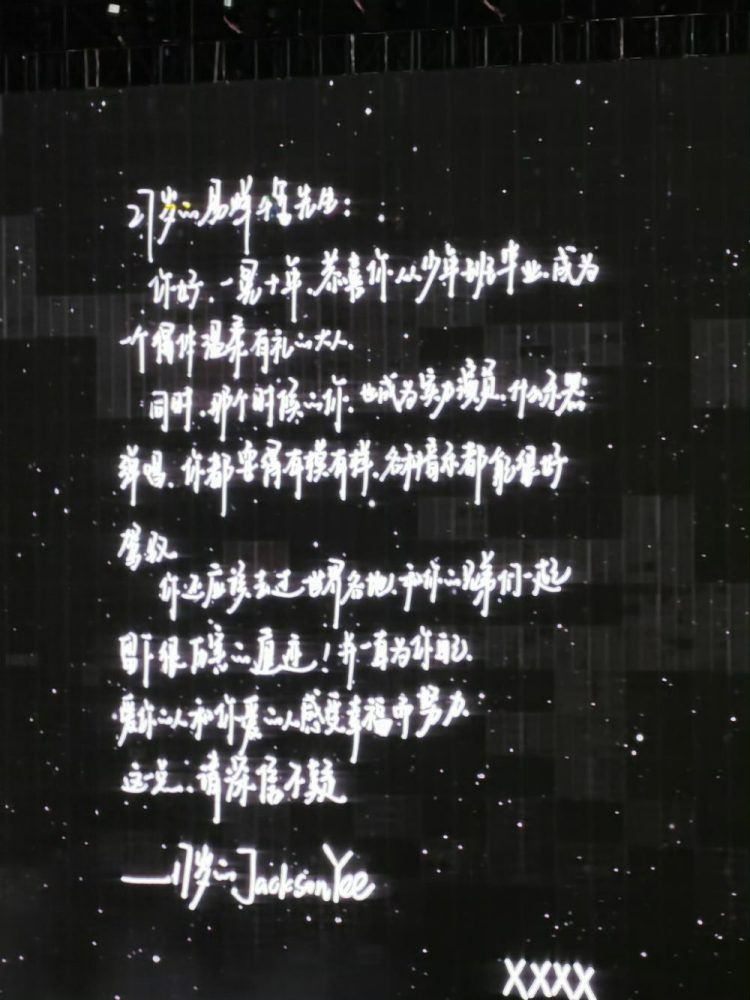 27岁的易烊千玺先生：
你好，一晃十年，恭喜你从少年班毕业，成为
一个得体温柔有礼的大人，
同时，那个时候的你，也成为实力演员，什么乐器
弹唱，你都耍得有模有样，各种音乐都能很好
驾驭
你还应该去过世界各地，和你的兄弟们一起
留下很厉害的轨迹！并一直为你自己，
爱你的人和你爱的人感受幸福而努力，
这一点，请深信不疑
——17岁的Jackson Yee
XXXX